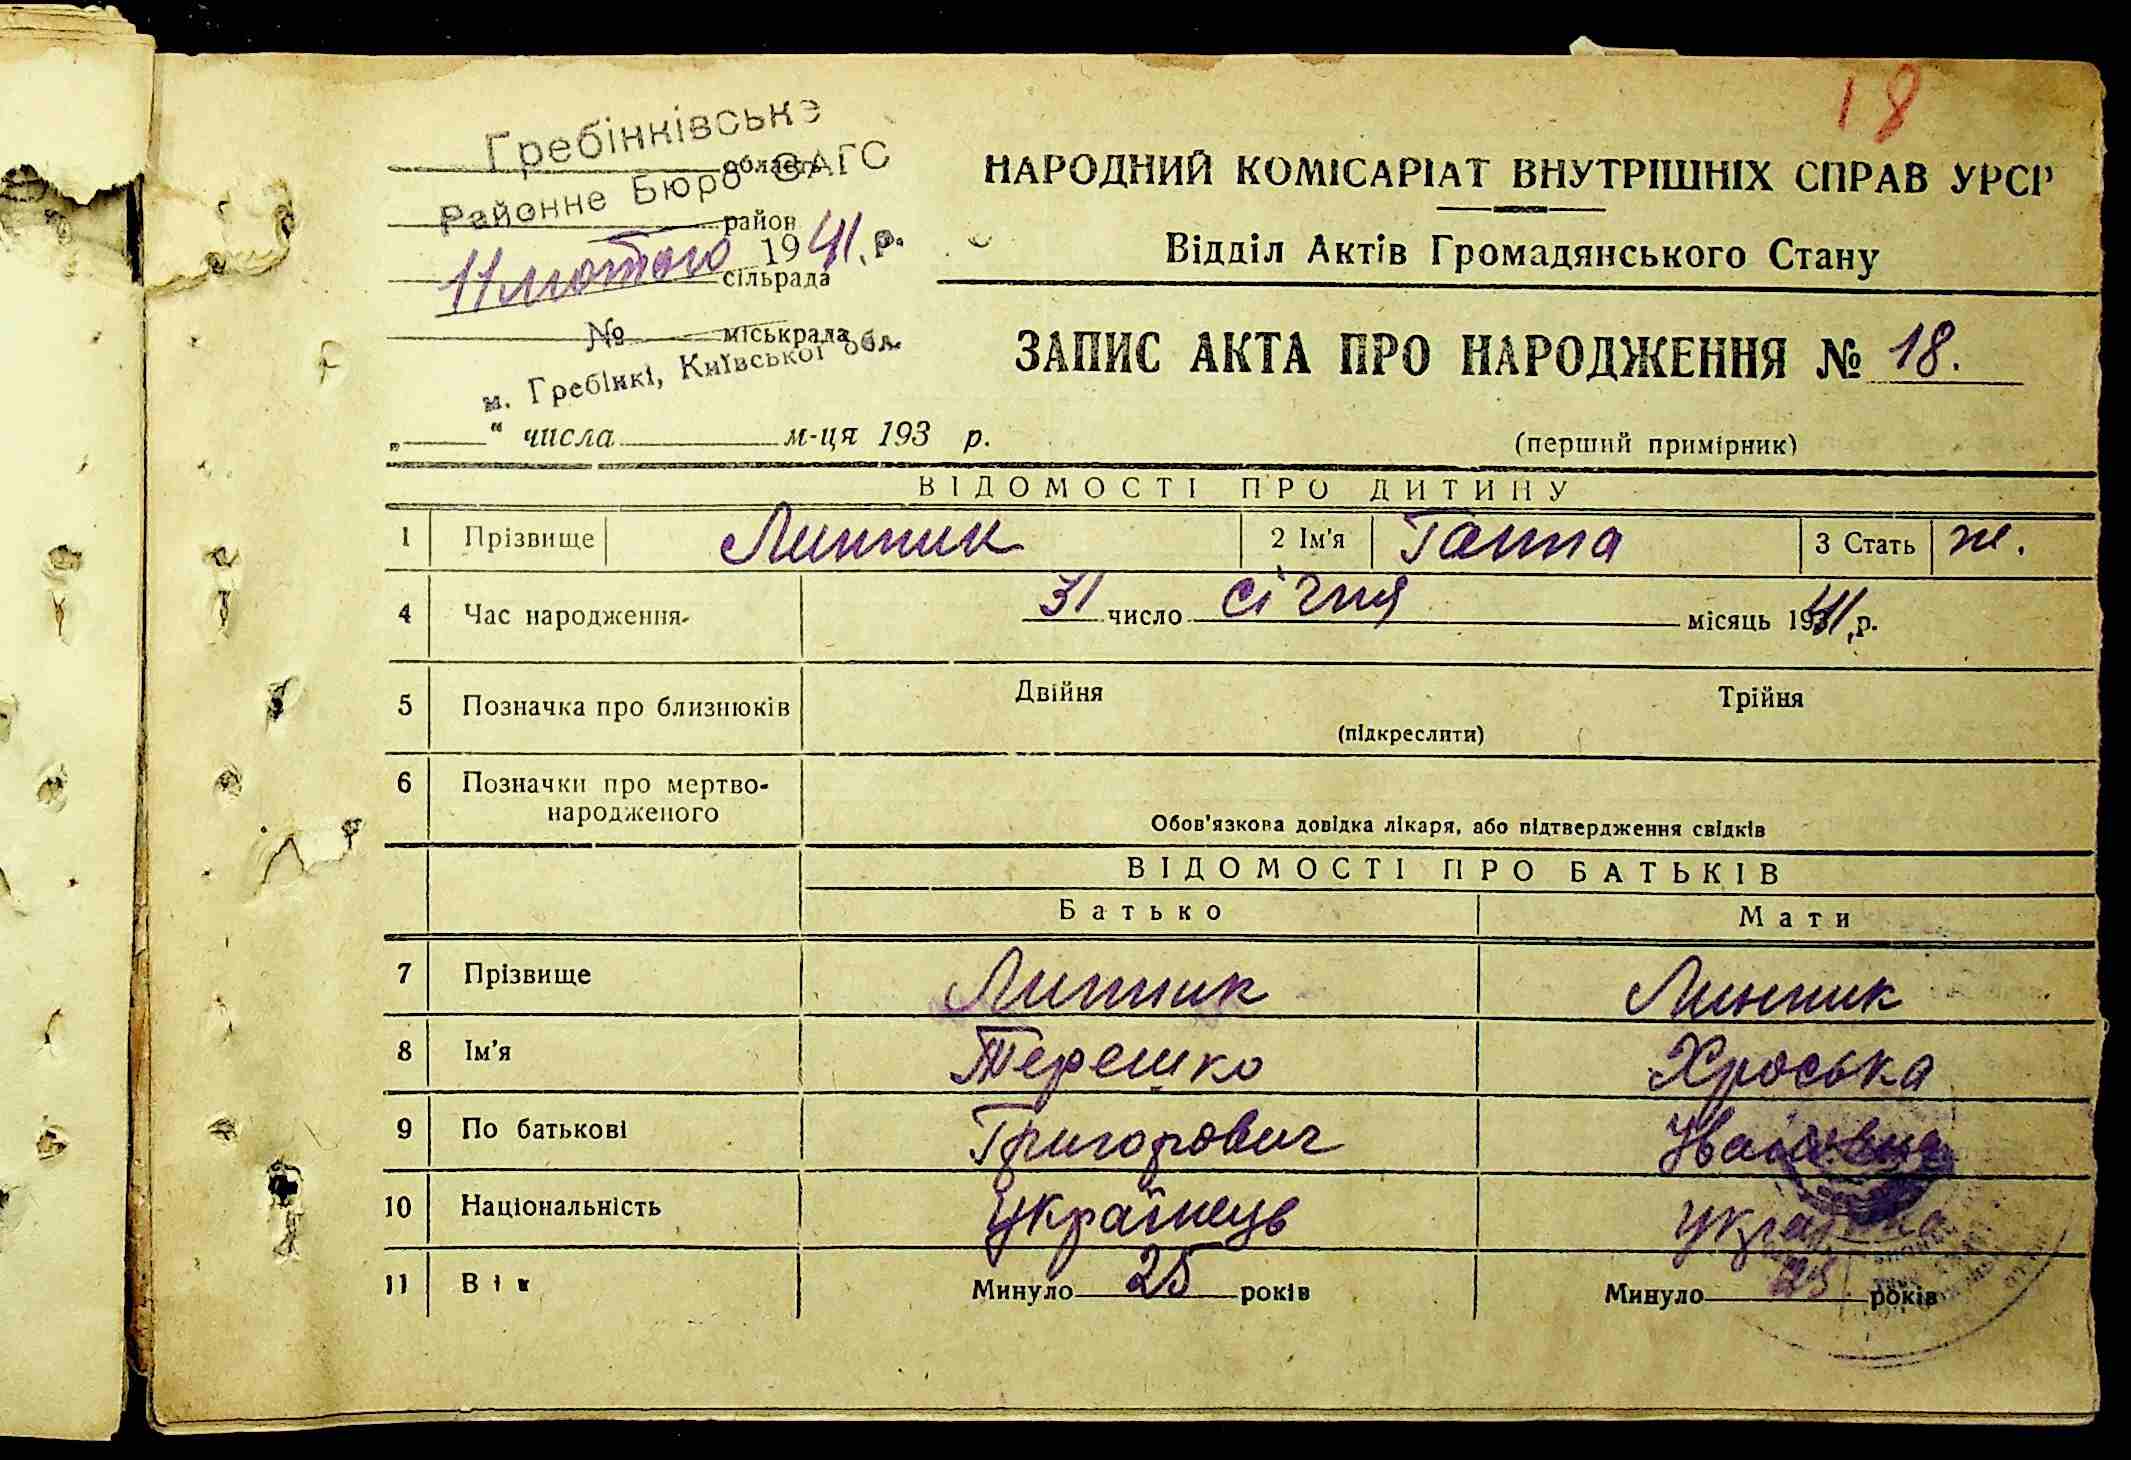 18
Гребінківське
область
Районне Бюро ЗАГС
район
11 лютого 1941 р.
сільрада
№ міськрада
м. Гребінкі, Київської обл.
„ “ числа м-ця 193 р.
НАРОДНИЙ КОМІСАРІАТ ВНУТРІШНІХ СПРАВ УРСР
Відділ Актів Громадянського Стану
ЗАПИС АКТА ПРО НАРОДЖЕННЯ № 18.
(перший примірник)
ВІДОМОСТІ ПРО ДИТИНУ
1 Прізвище Линник 2 Ім'я Ганна 3 Стать ж.
4 Час народження 31 число січня місяць 1941 р.
5 Позначка про близнюків Двійня Трійня
(підкреслити)
6 Позначки про мертво-
народженого
Обов'язкова довідка лікаря, або підтвердження свідків
ВІДОМОСТІ ПРО БАТЬКІВ
Батько Мати
7 Прізвище Линник Линник
8 Ім'я Терешко Хроська
9 По батькові Григорович Іванівна
10 Національність Українець Українка
11 Вік Минуло 25 років Минуло 25 років